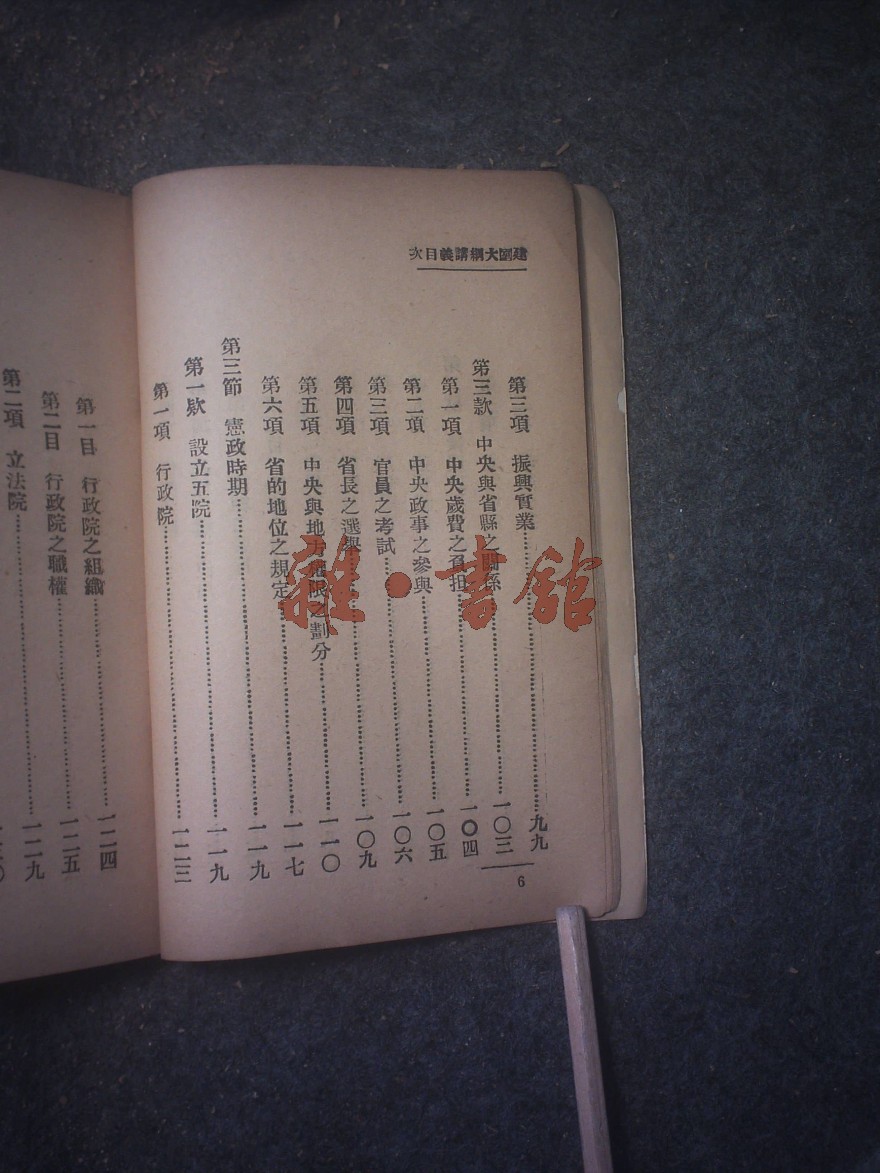 建國大綱講義目次
第三項 振興實業……九九
第三款 中央與省縣之關係……一〇三
第一項 中央歲費之負担……一〇四
第二項 中央政事之參與……一〇五
第三項 官員之考試……一〇六
第四項 省長之選舉……一〇九
第五項 中央與地方權限之劃分……一一〇
第六項 省的地位之規定……一一七
第三節 憲政時期……一一九
第一欵 設立五院……一一九
第一項 行政院……一二三
6
第一目 行政院之組織……一二四
第二目 行政院之職權……一二五
第二項 立法院……一二九
雜·書舘